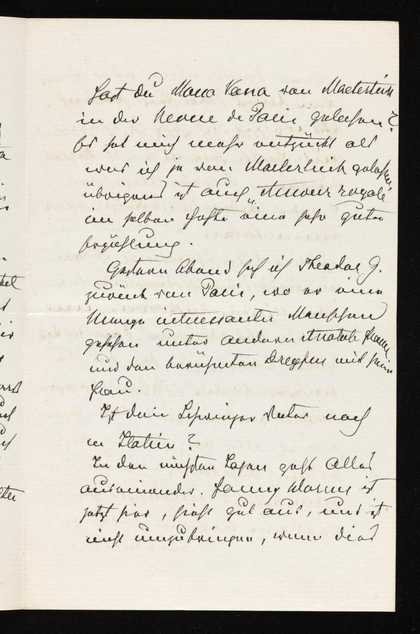 Hast du Mona Vana von Maeterlinck
in der Revue de Paris gelesen?
Es hat mich mehr entzückt als
was ich je von Maeterlinck gelesen,
übrigens ist auch „Amour royale
im selben Hefte eine sehr gute
Erzählung.
Gestern Abend sah ich Theodor G.
zurück von Paris, wo er eine
Menge interessanter Menschen
gesehen unter andern Anatole France
und den berühmten Dreyfus mit seiner
Frau.
Ist dein Vater noch
in Italien?
In den nächsten Tagen geht alles
auseinander. Fanny ist
jetzt hier, sieht gut aus, und ist
nicht umzubringen, wenn dies